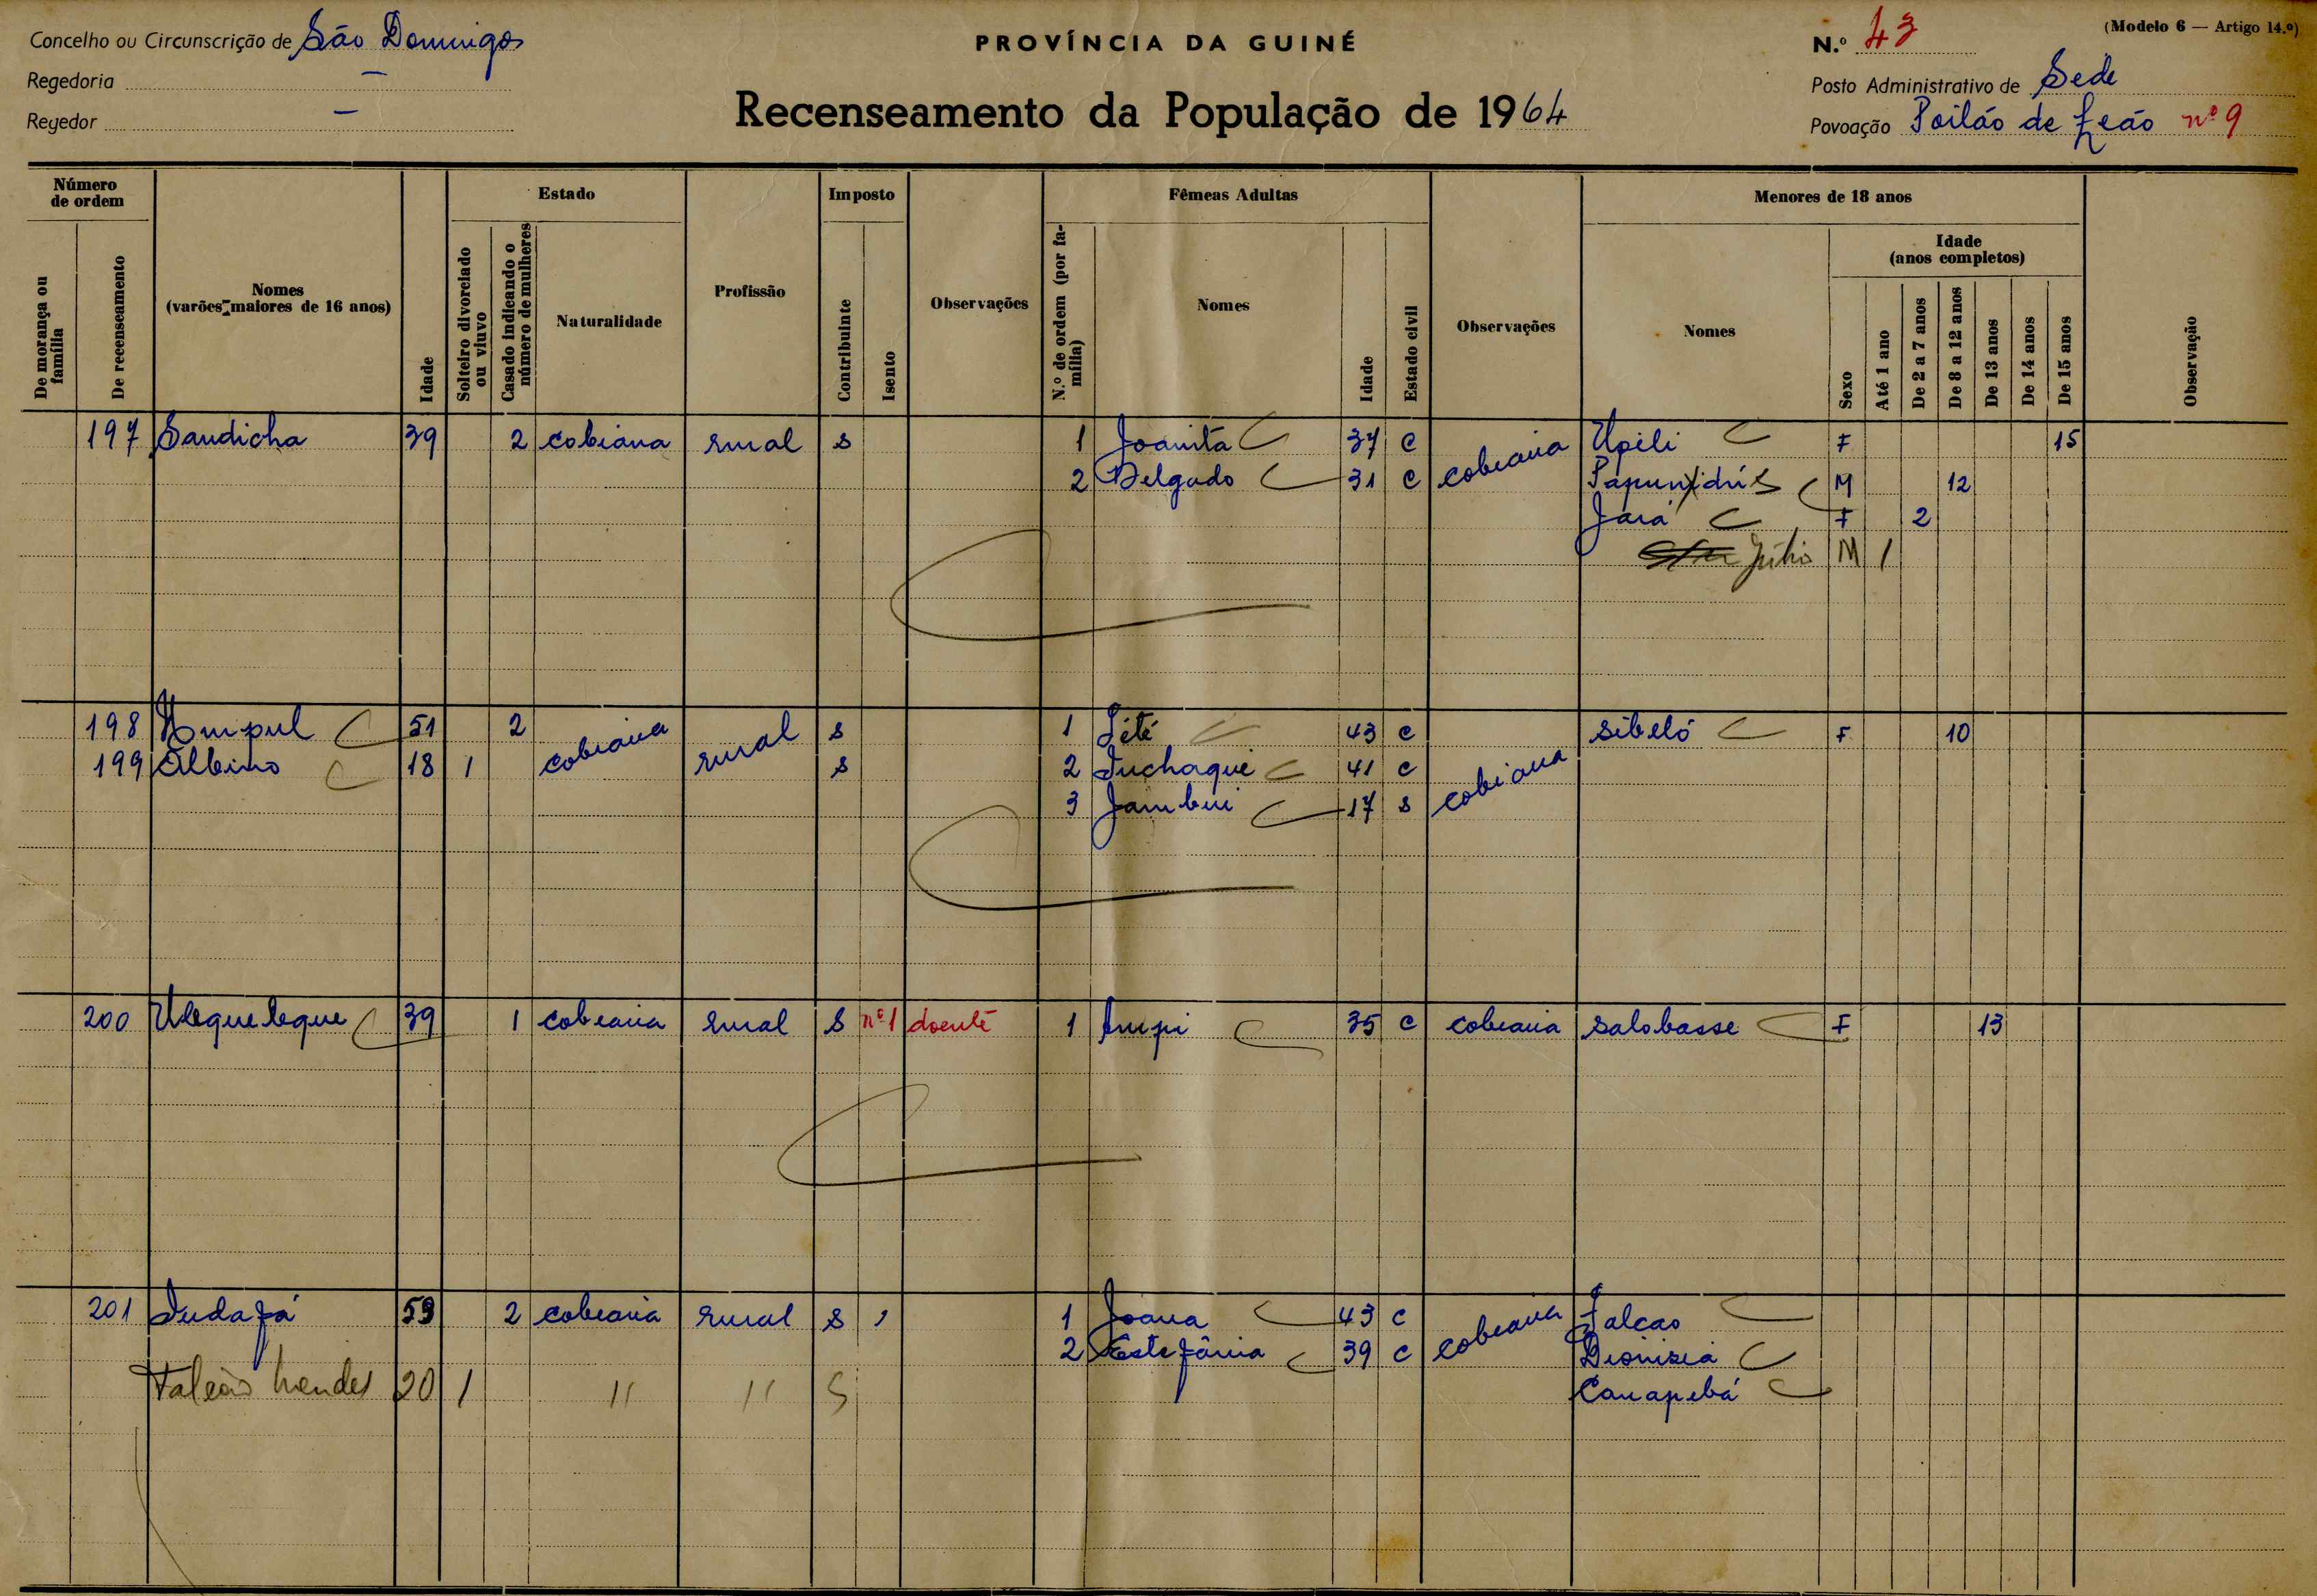 Concelho ou Circunscrição de São Domingos
Regedoria —
Regedor —
PROVÍNCIA DA GUINÉ
Recenseamento da População de 1964
(Modelo 6 — Artigo 14.º)
N.º 43
Posto Administrativo de Sede
Povoação Poilão de Leão nº 9
Número de ordem
De morança ou família
De recenseamento
Nomes (varões maiores de 16 anos)
Idade
Estado
Solteiro divorciado ou viuvo
Casado indicando o número de mulheres
Naturalidade
Profissão
Imposto
Contribuinte
Isento
Observações
Fêmeas Adultas
N.º de ordem (por família)
Nomes
Idade
Estado civil
Observações
Menores de 18 anos
Nomes
Idade (anos completos)
Sexo
Até 1 ano
De 2 a 7 anos
De 8 a 12 anos
De 13 anos
De 14 anos
De 15 anos
Observação
197 Saudicha 39 2 cobiana rural s 1 Joanita 37 c cobiana Upili F 15
2 Delgado 31 c M 12
Jará F 2
Júlio M 1
198 Umpul 51 2 cobiana rural s 1 43 c sibeló F 10
199 Albino 18 1 s 2 Juchaqué 41 c cobiana
3 Jambui 17 s
200 39 1 cobiana rural s nº1 doente 1 35 c cobiana salobasse F 13
201 59 2 cobiana rural s 1 Joana 43 c cobiana Falcao
2 Estefânia 39 c Dionisia
Falcão Mendes 20 1 11 11 S Canapebá